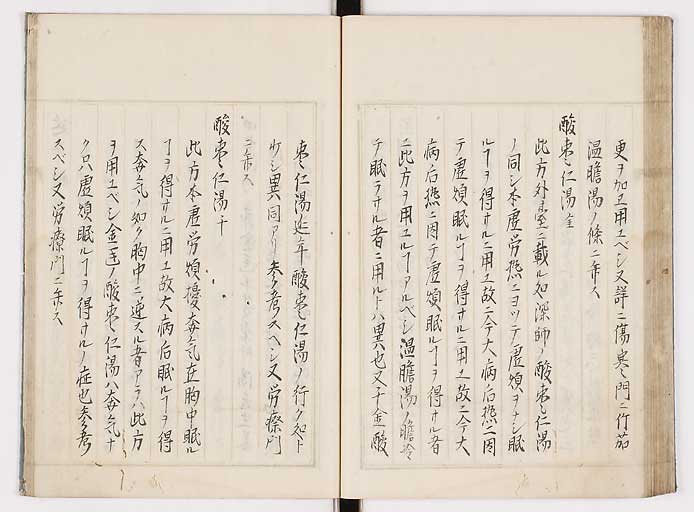 更ヲ加ヱ用ユベシ又詳ニ傷寒門ニ竹茹
温膽湯ノ條ニ弁ス
酸棗仁湯 金
此方外臺ニ載ル知深師ノ酸棗仁湯
ノ同シ本虚労熱ニヨツテ虚煩ヲナシ眠
ルヿヲ得サルニ用ユ故ニ今大病后熱ニ因
テ虚煩眠ルヿヲ得サルニ用ユ故ニ今大
病后熱ニ因テ虚煩眠ルヿヲ得サル者
ニ此方ヲ用ユルヿアルベシ温膽湯ノ膽冷
テ眠ラサル者ニ用ルトハ異也又千金酸
棗仁湯延年酸棗仁湯ノ行ク知ト
少シ異同アリ参考スヘシ又労療門
ニ弁ス
酸棗仁湯 千
此方本虚労煩擾奔気在胸中眠ル
ヿヲ得サルニ用ユ故大病后眠ルヿヲ得
ス奔気ノ如ク胸中ニ逆スル者アラバ此方
ヲ用ユベシ金匱ノ酸棗仁湯ハ奔気ナ
ク只虚煩眠ルヿヲ得サルノ症也参考
スベシ又労療門ニ弁ス